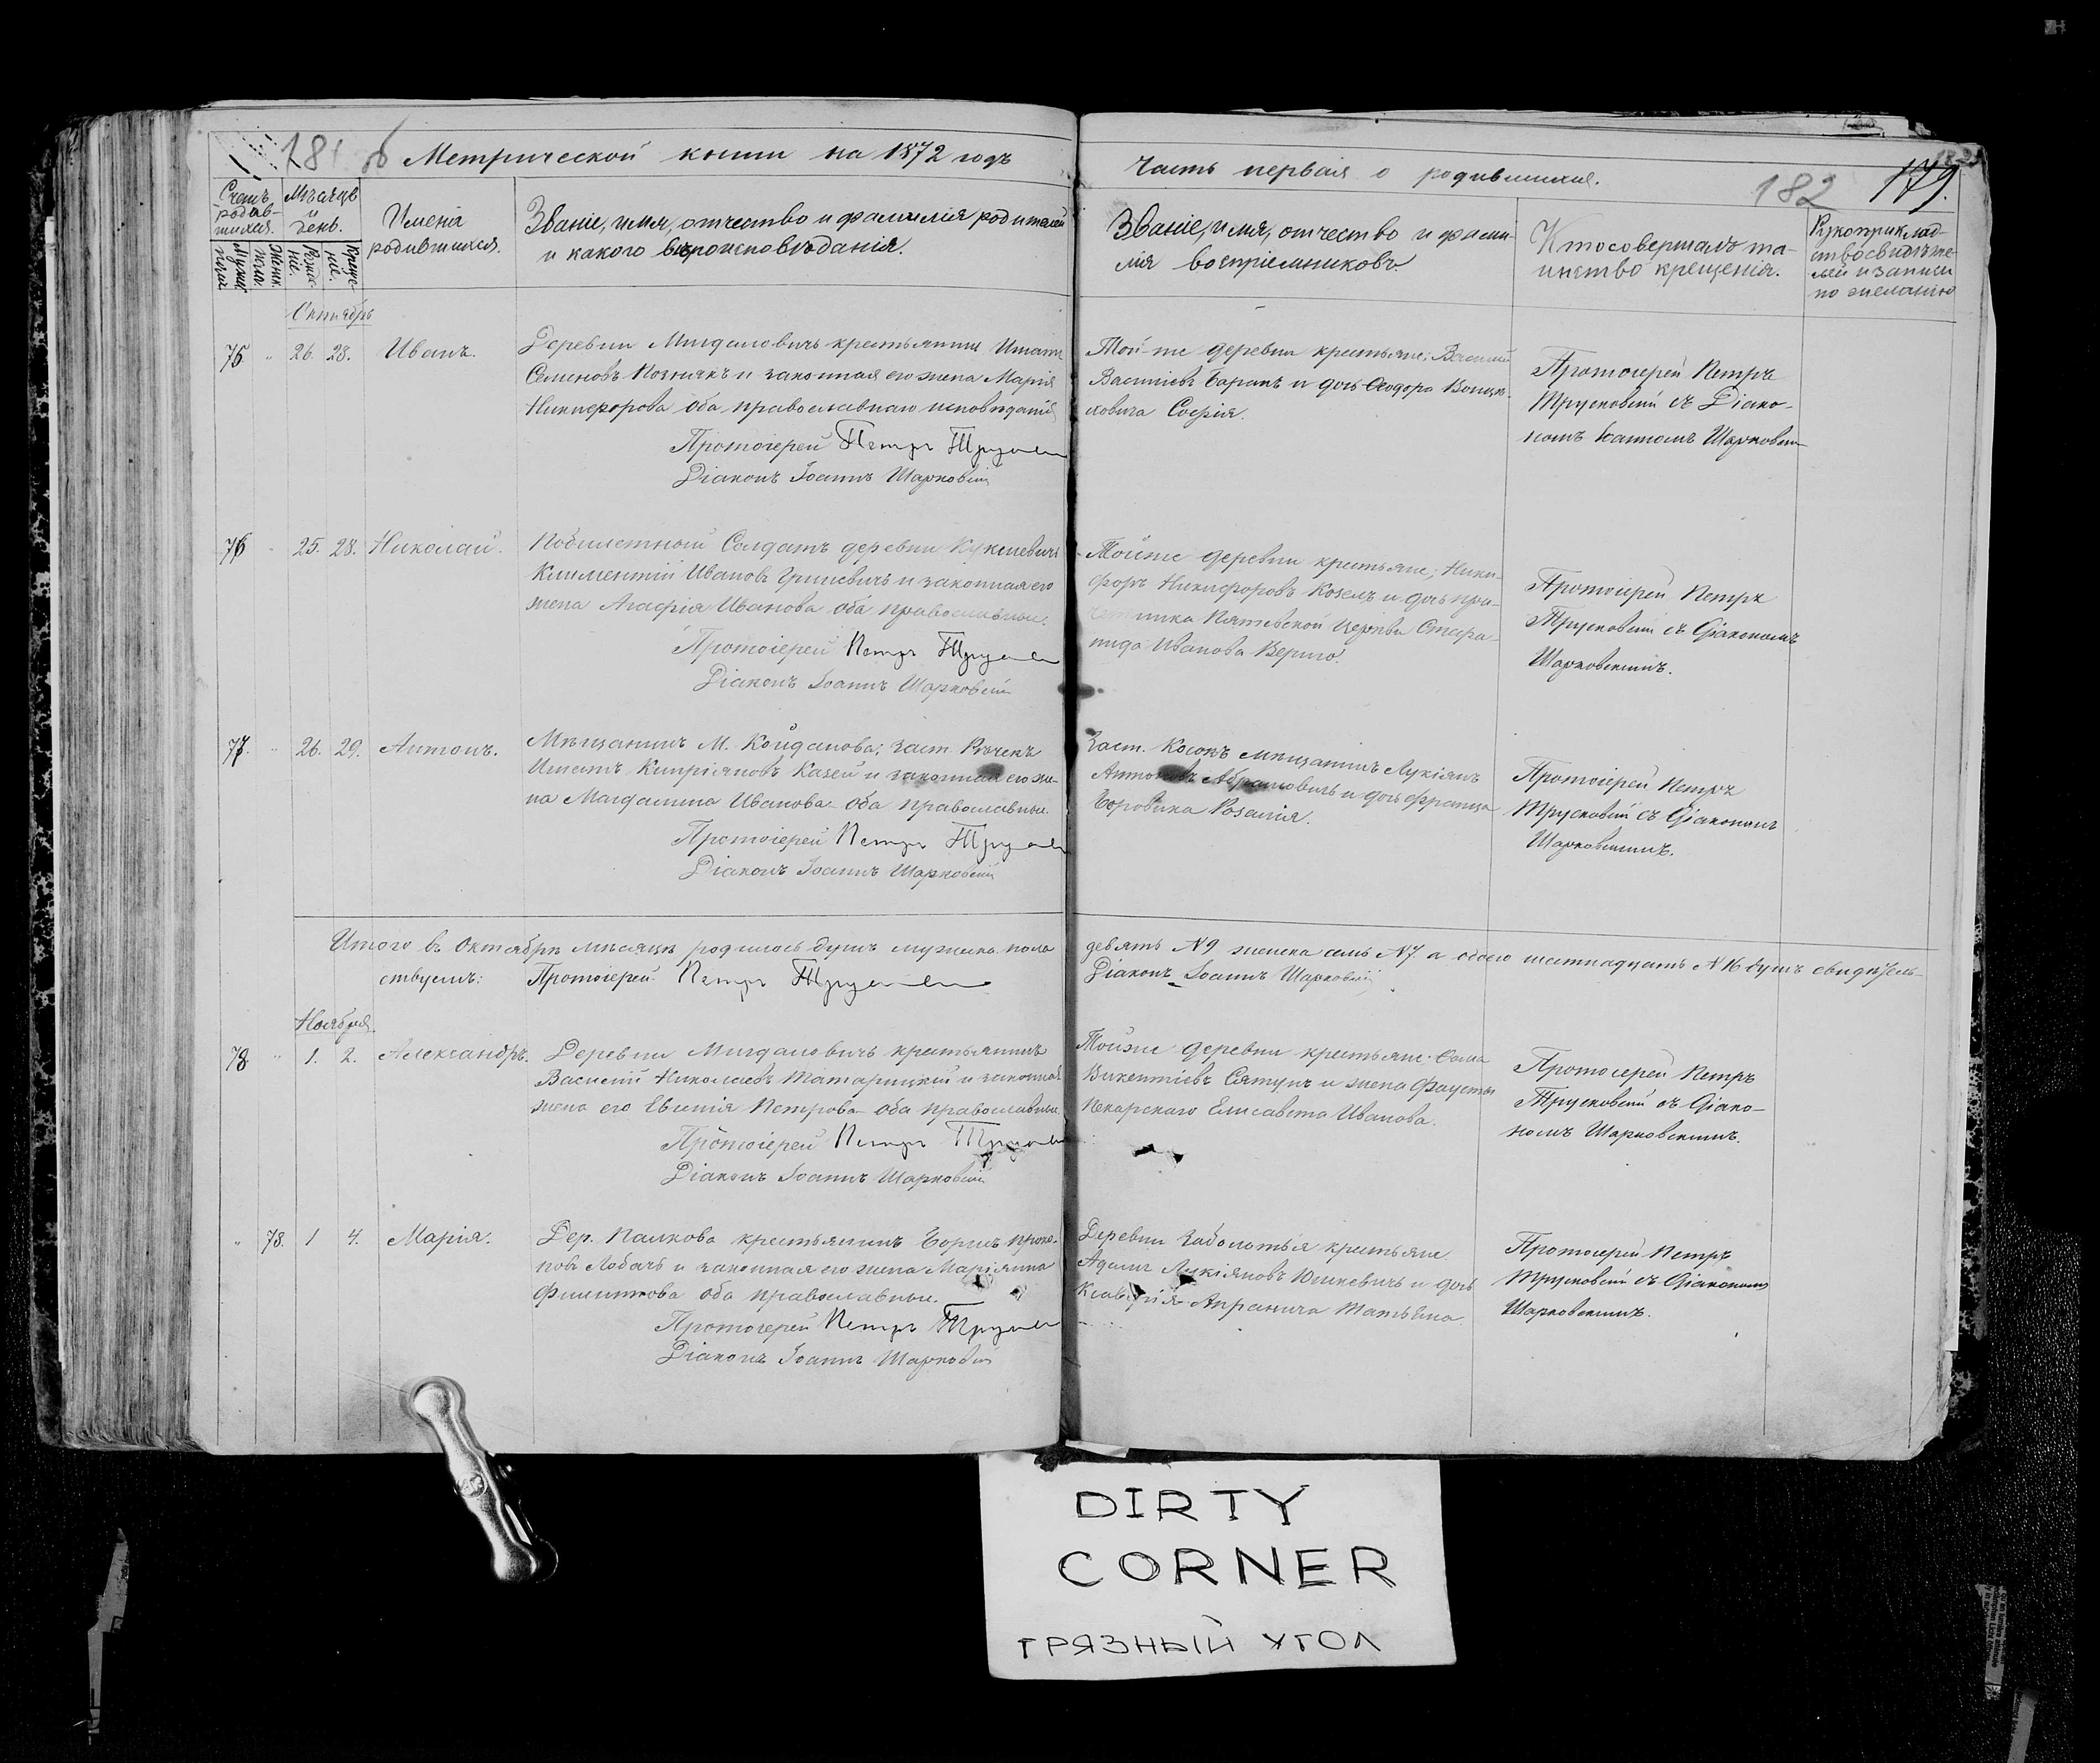 181 об Метрической книги на 1872 годъ
Часть первая о родившихся.
182 179.
Счетъ родив-шихся.
Мужск. пола.
Женск. пола.
Мѣсяцъ и день.
Рожде-ніе.
Креще-ніе.
Имена родившихся.
Званіе, имя, отчество и фамилія родителей
и какого вѣроисповѣданія.
Званіе, имя, отчество и фами-
лія воспріемниковъ.
Кто совершалъ та-
инство крещенія.
Рукоприклад-
ство свидѣте-
лей и записи
по желанію
Октябрь
75 " 26. 28. Иванъ.
Деревни Мигдаловичь крестьянинъ Игнатій
Семеновъ Познякъ и законная его жена Марія
Никифорова оба православнаго исповѣданія
Протоіерей Петръ
Діаконъ Іоаннъ Шарковскій
Той-же деревни крестьяне: Василій
Васильевъ Баранъ и дочь Ѳеодора
Софія.
Протоіерей Петръ
Трусковскій съ Діако-
номъ Іоанномъ Шарковски
76 " 25. 28. Николай.
Побилетный Солдатъ деревни
Климентій Ивановъ Гриневичъ и законная его
жена Агафія Иванова оба православные.
Протоіерей Петръ
Діаконъ Іоаннъ Шарковскій
Тойже деревни крестьяне; Ники-
форъ Никифоровъ Козелъ и дочь при-
четника Церкви Стефа-
нида Иванова
Протоіерей Петръ
Трусковскій съ Діакономъ
Шарковскимъ.
77. " 26. 29. Антонъ.
Мѣщанинъ М. Койданова; заст. Рѣчекъ
Игнатъ Кипріяновъ Казей и законная его же-
на Магдалина Иванова оба православные.
Протоіерей Петръ
Діаконъ Іоаннъ Шарковскій
Заст. Косокъ мѣщанинъ Лукіянъ
Антоновъ Абрамовичъ и дочь Франца
Боровика Розалія.
Протоіерей Петръ
Трусковскій съ Діакономъ
Шарковскимъ.
Итого въ Октябрѣ мѣсяцѣ родилось душъ мужеска пола девять №9 женска семь №7 а обоего шестнадцать №16 душъ свидѣтель-
ствуемъ: Протоіерей Петръ
Діаконъ Іоаннъ Шарковскій
Ноября.
78 " 1. 2. Александръ.
Деревни Мигдаловичь крестьянинъ
Василій Николаевъ Татарицкій и законная
жена его Евгенія Петрова оба православные.
Протоіерей Петръ
Діаконъ Іоаннъ Шарковскій
Тойже деревни крестьяне: Ѳома
Викентіевъ и жена Фаустына
Пекарскаго Елисавета Иванова.
Протоіерей Петръ
Трусковскій съ Діако-
номъ Шарковскимъ.
" 78. 1 4. Марія.
Дер. Палкова крестьянинъ Борисъ Проко-
повъ Лобачъ и законная его жена Маріянна
Филиппова оба православные.
Протоіерей Петръ
Діаконъ Іоаннъ Шарковскій
Деревни Заболотья крестьяне
Адамъ Лукіяновъ Юшкевичъ и дочь
Татьяна.
Протоіерей Петръ
Трусковскій съ Діакономъ
Шарковскимъ.
DIRTY
CORNER
ГРЯЗНЫЙ УГОЛ